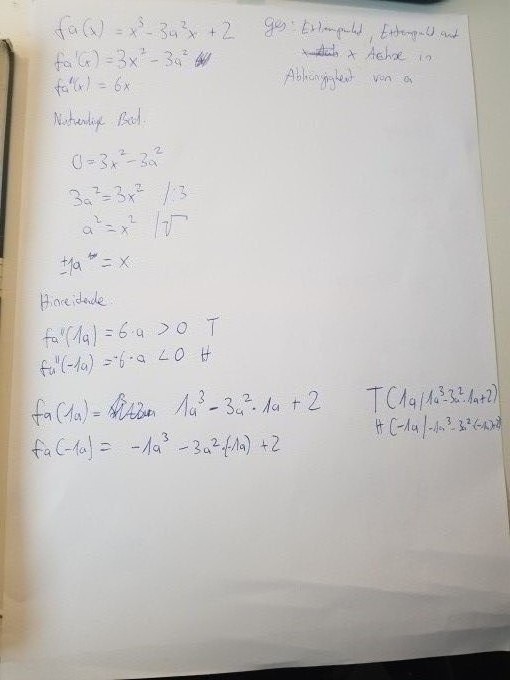 fa(x) = x³ - 3a²x + 2
ges: Extrempunkt, Extrempunkt auf
x Achse in
Abhängigkeit von a
fa'(x) = 3x² - 3a²
fa''(x) = 6x
Notwendige Bed.
0 = 3x² - 3a²
3a² = 3x² |:3
a² = x² |√
±1a = x
Hinreichende
fa''(1a) = 6·a > 0 T
fa''(-1a) = -6·a < 0 H
fa(1a) = 1a³ - 3a²·1a + 2
T(1a|1a³-3a²·1a+2)
H(-1a|-1a³-3a²·(-1a)+2)
fa(-1a) = -1a³ - 3a²·(-1a) + 2